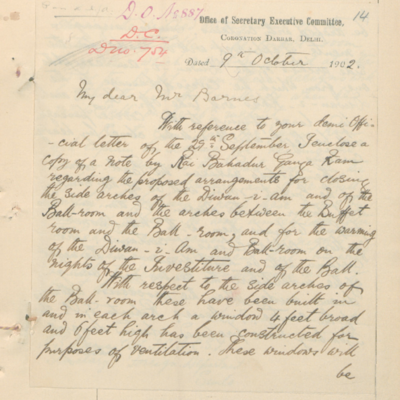 D.O. No 887
14
Office of Secretary Executive Committee.
D.C.
Coronation Darbar, Delhi.
D no. 754
Dated 9th October 1902.
My dear Mr Barnes
With reference to your demi Offi-
-cial letter of the 29th September I enclose a
copy of a note by Rai Bahadur Ganga Ram
regarding the proposed arrangements for closing
the side arches of the Diwan-i-Am and of the
Ball-room and the arches between the Buffet
room and the Ball-room, and for the warming
of the Diwan-i-Am and Ball-room on the
nights of the Investiture and of the Ball.
With respect to the side arches of
the Ball-room these have been built in
and in each arch a window 4 feet broad
and 6 feet high has been constructed for
purposes of ventilation. These windows will
be